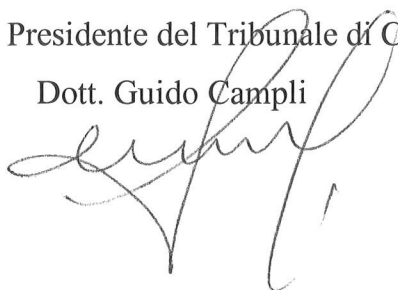 Presidente del Tribunale di C
Dott. Guido Campli